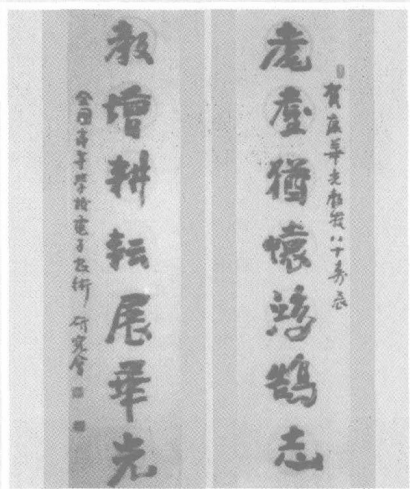 賀康華光教授八十壽辰
耄耋猶懷鴻鵠志
教增耕耘展華光
全国高等學校電子技術研究會